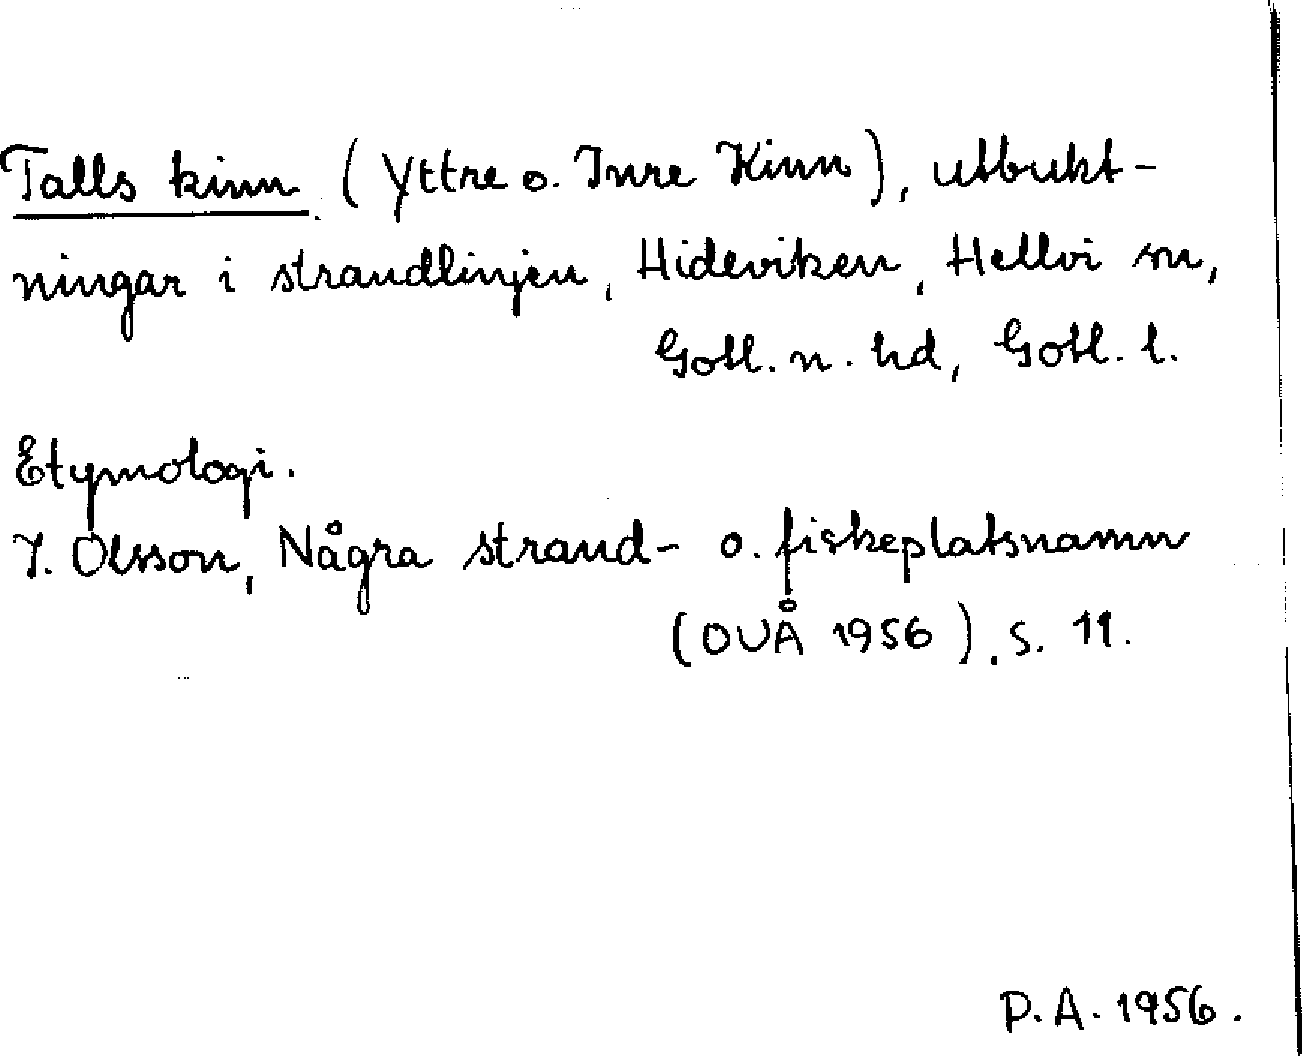 Talls kinn (Yttre o. Inre Kinn), utbukt-
ningar i strandlinjen, Hideviken, Hellvi sn,
Gotl. n. hd, Gotl. l.
Etymologi.
I. Olsson, Några strand- o. fiskeplatsnamn
(OUÅ 1956). s. 11.
P.A. 1956.